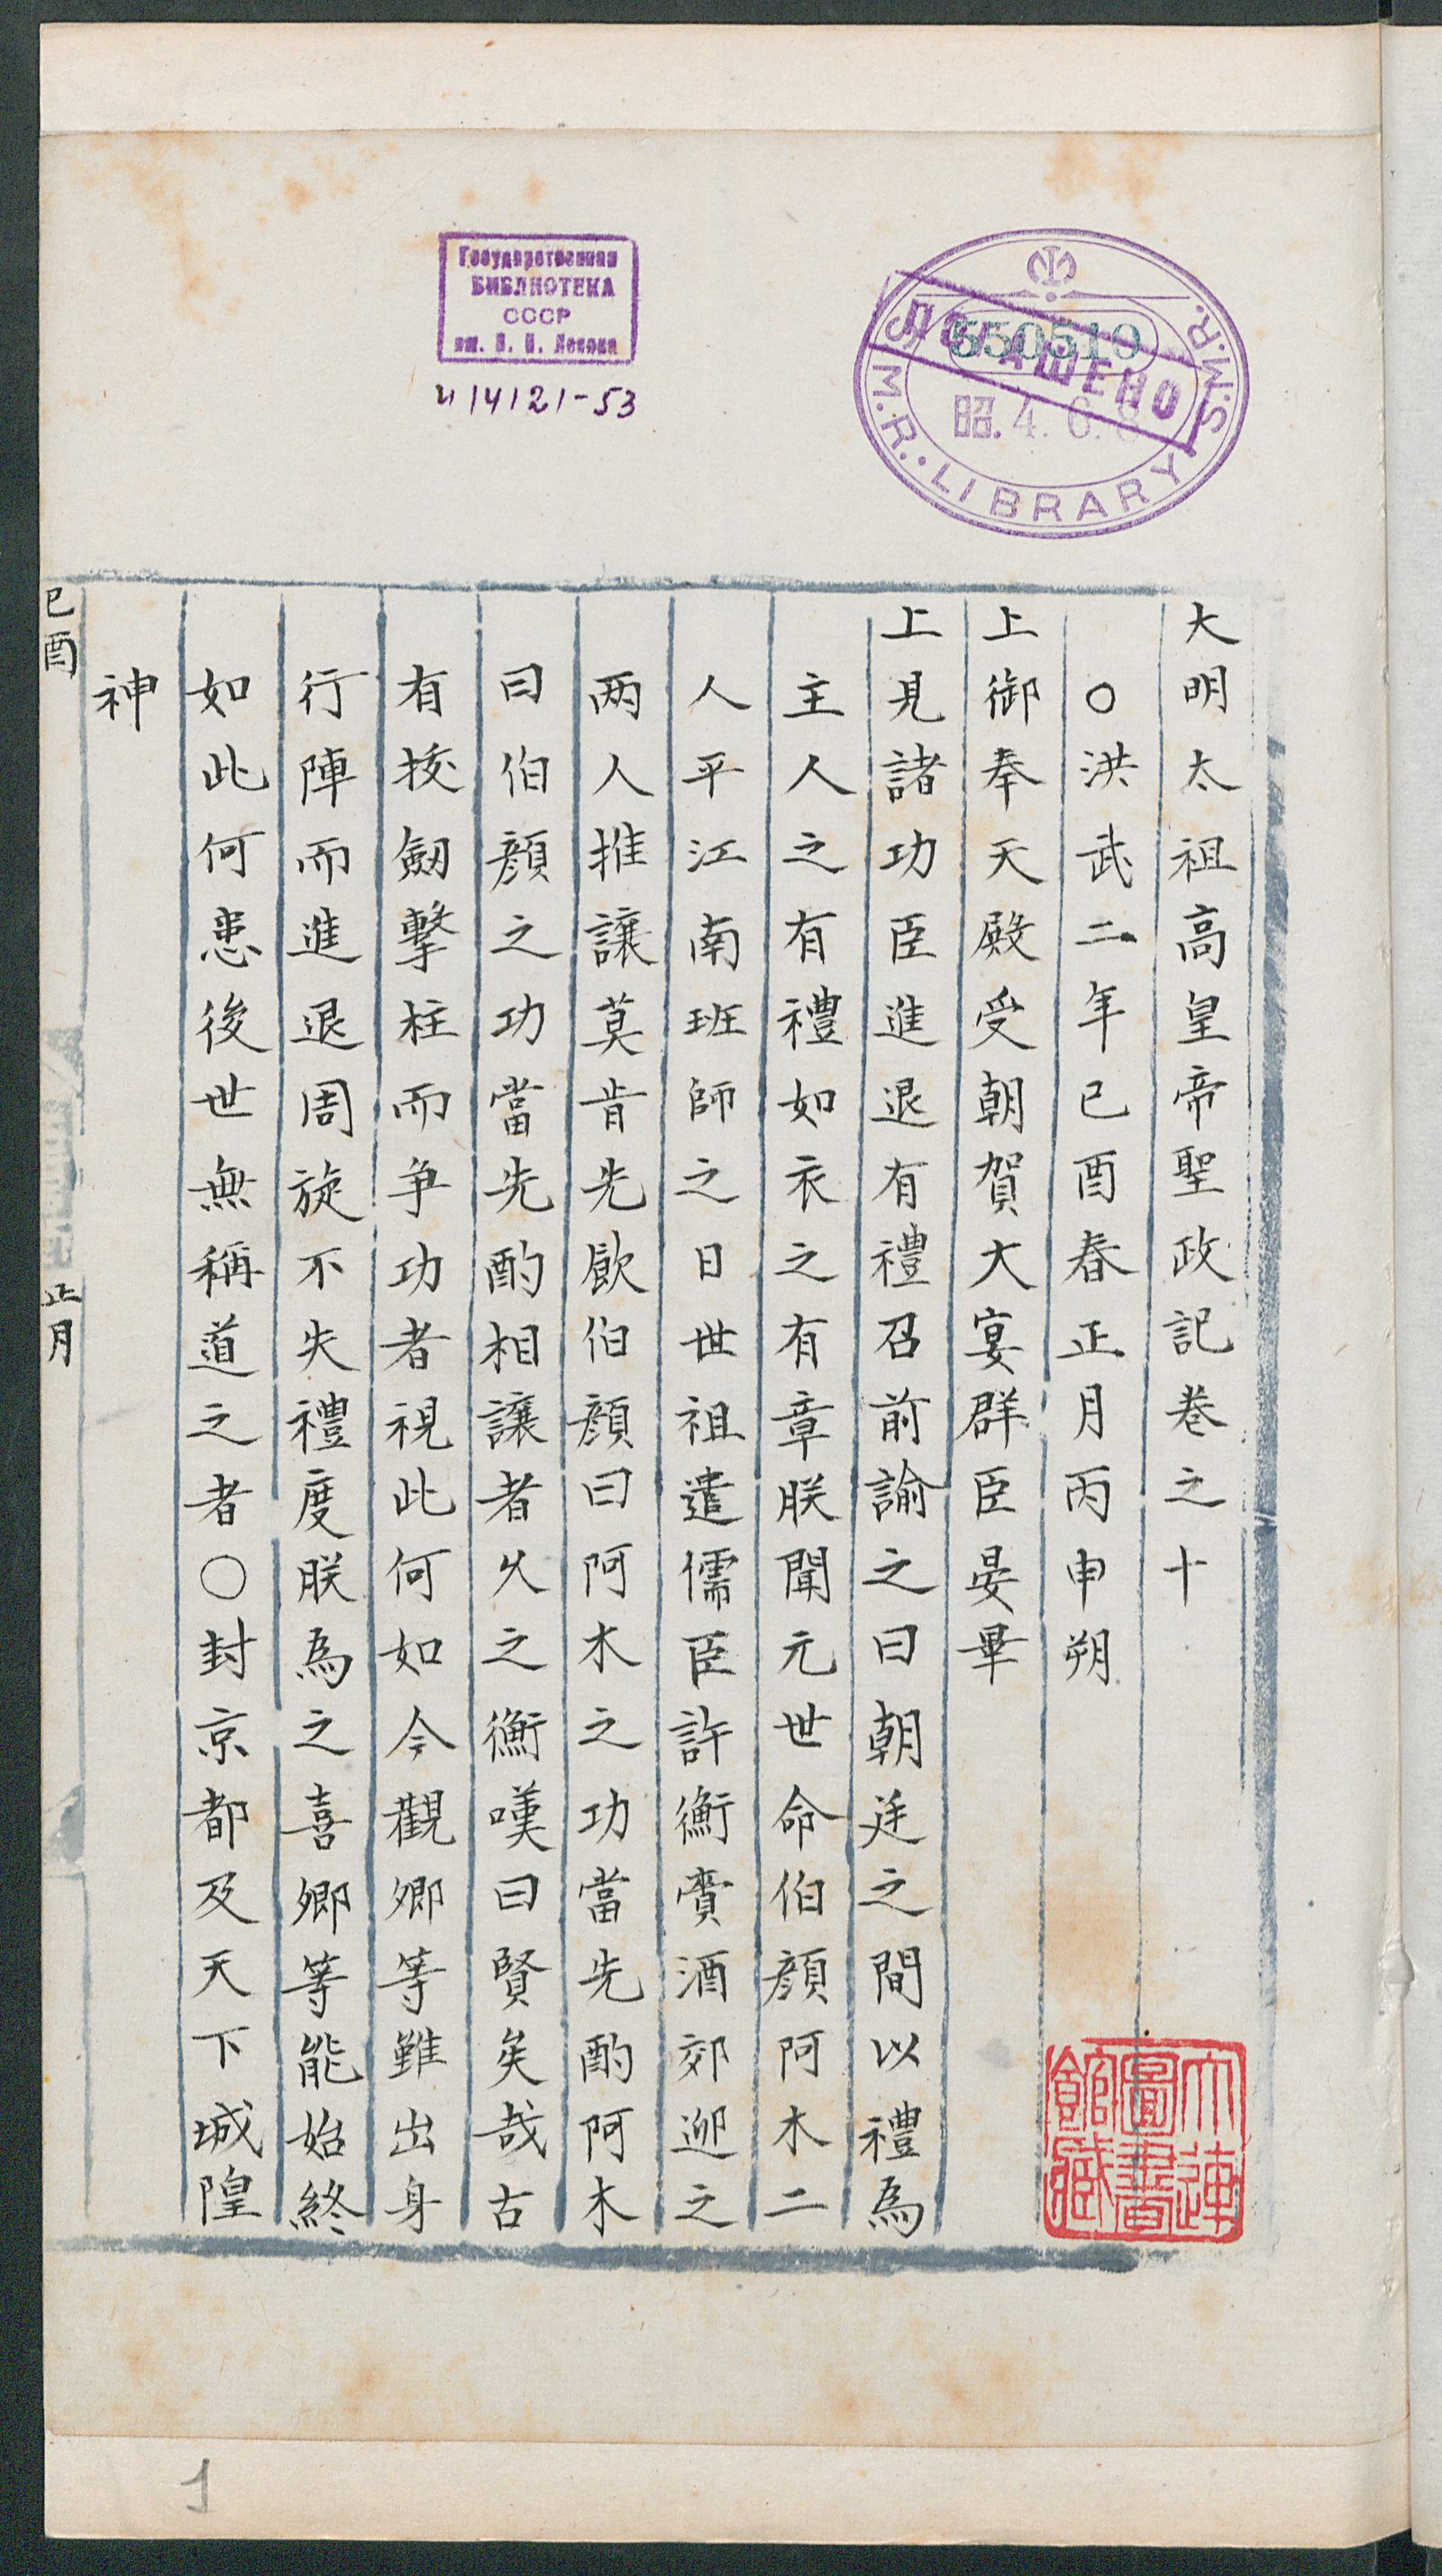 Государственная
БИБЛИОТЕКА
СССР
им. В. И. Ленина
и 14121-53
S.M.R. LIBRARY S.M.R.
550519
昭. 4. 6. 8
ПОГАШЕНО
大明太祖高皇帝聖政記卷之十
○洪武二年已酉春正月丙申朔
上御奉天殿受朝賀大宴群臣晏畢
上見諸功臣進退有禮召前諭之曰朝廷之間以禮為
主人之有禮如衣之有章朕聞元世命伯顔阿木二
人平江南班師之日世祖遣儒臣許衡賫酒郊迎之
两人推讓莫肯先飲伯顔曰阿木之功當先酌阿木
曰伯顔之功當先酌相讓者乆之衡嘆曰賢矣哉古
有拔劔擊柱而争功者視此何如今觀卿等雖出身
行陣而進退周旋不失禮度朕為之喜卿等能始終
如此何患後世無稱道之者○封京都及天下城隍
神
已酉
正月
大連
圖書
館藏
1